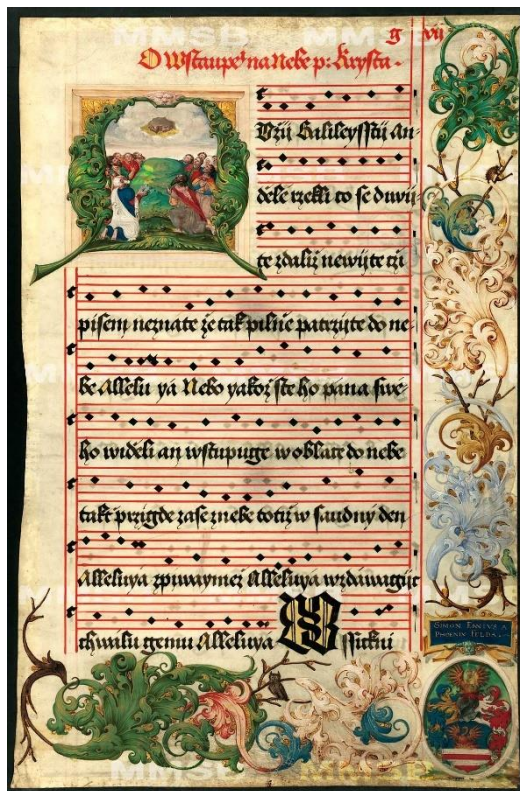 g vii
O Wstaupeń na Nebe p: Krysta.
Vžij Galileysstij An-
dele rzekli co se diwij-
te zdaliž newijte cži
pisem neznate že tak pilňe patrzijte do ne-
be Allelu ya Nebo yakož ste ho pana swe-
ho wideli an wstupuge w oblace do nebe
takt przigde zase z nebe totiž w saudny den
Alleluya zpiwaymež Alleluya wzdawagijc
chwalu gemu Alleluya Wssickni
SIMON
PHOENIX FELDS
MMSB